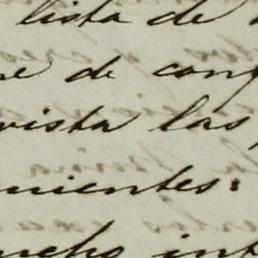 lista de
e de conf
vista las
mientes:
ucho int